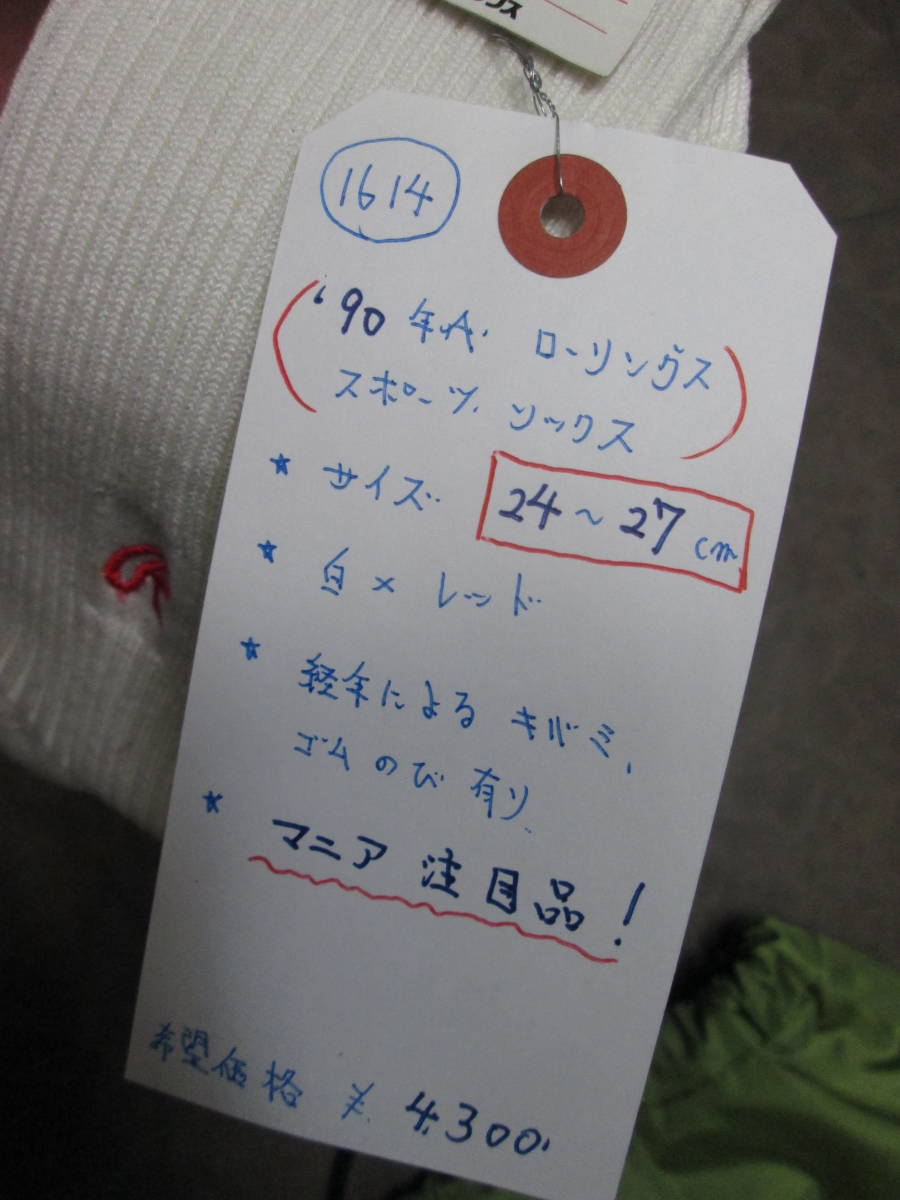 1614
'90年代 ローリングス
スポーツ ソックス
★ サイズ 24～27cm
★ 白×レッド
★ 経年によるキバミ、
ゴムのび有り
★ マニア注目品!
希望価格 ¥4,300.